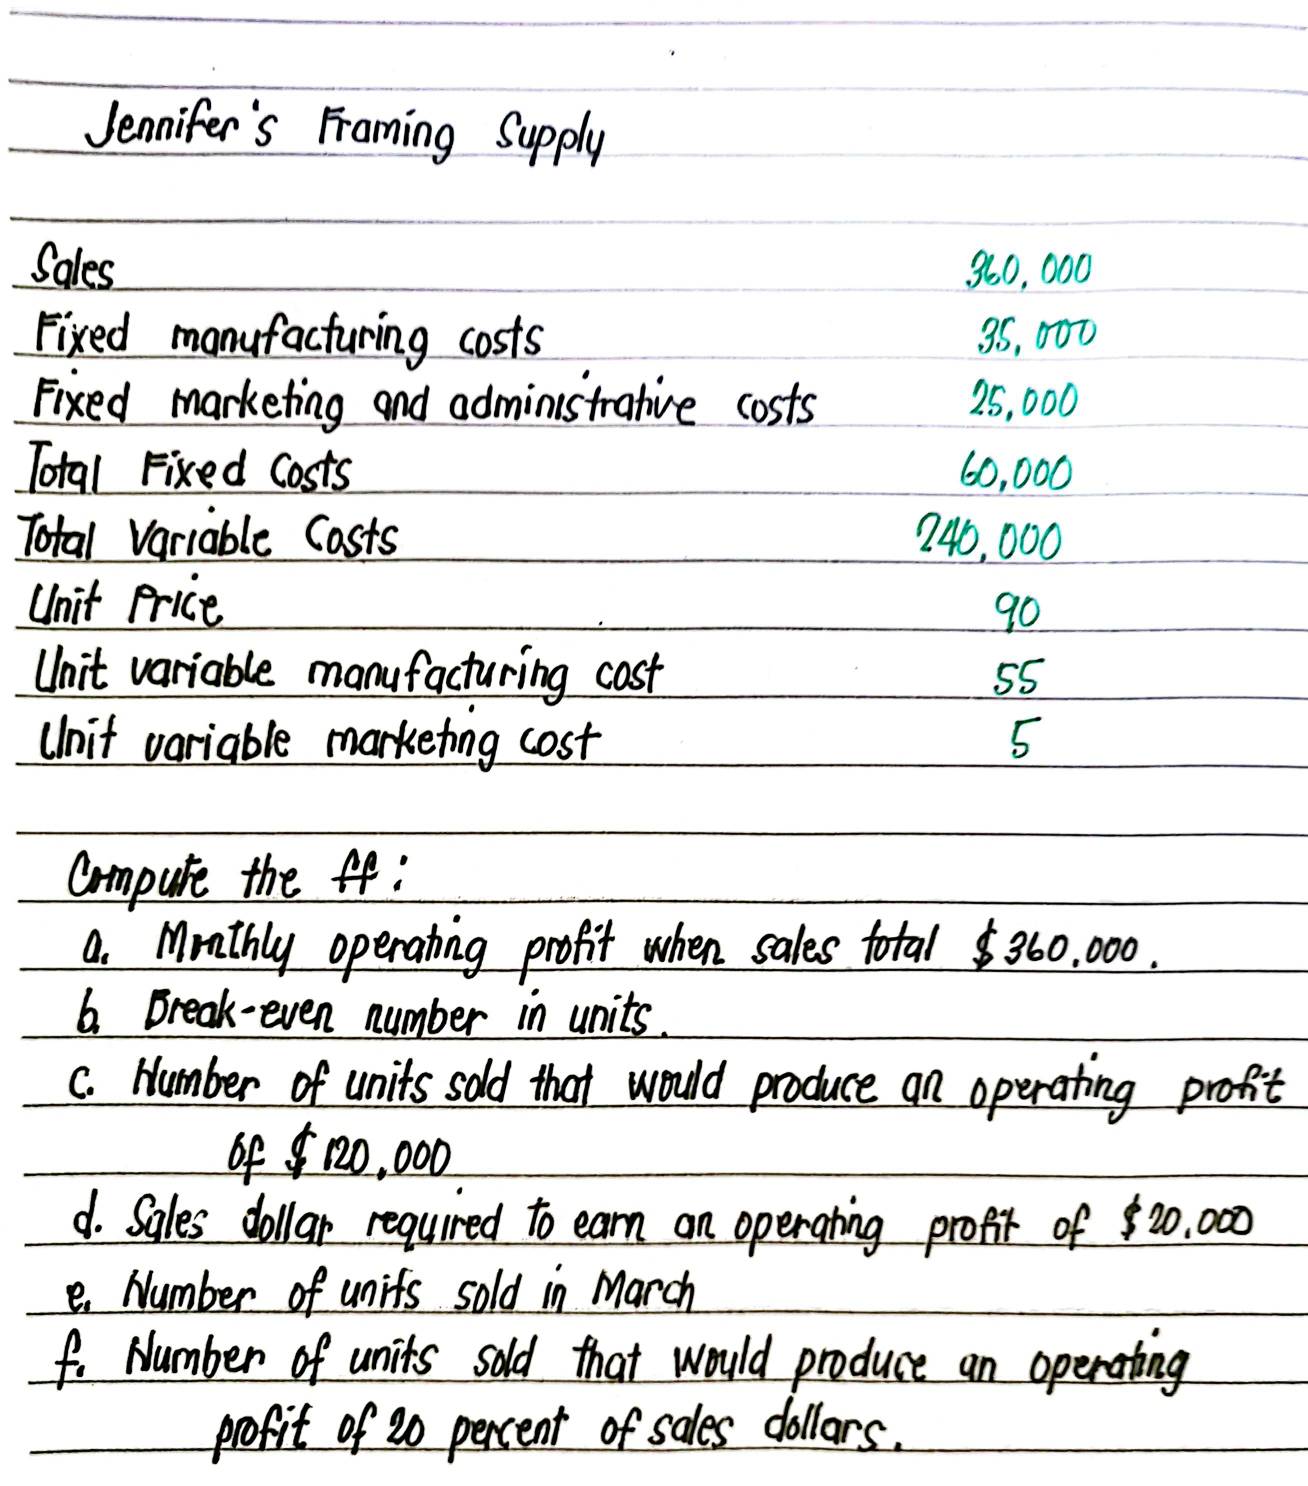 Jennifer's Framing Supply
Sales 360,000
Fixed manufacturing costs 35,000
Fixed marketing and administrative costs 25,000
Total Fixed Costs 60,000
Total Variable Costs 240,000
Unit Price 90
Unit variable manufacturing cost 55
Unit variable marketing cost 5
Compute the ff:
a. Monthly operating profit when sales total $360,000.
b. Break-even number in units.
c. Number of units sold that would produce an operating profit
of $120,000
d. Sales dollar required to earn an operating profit of $20,000
e. Number of units sold in March
f. Number of units sold that would produce an operating
profit of 20 percent of sales dollars.